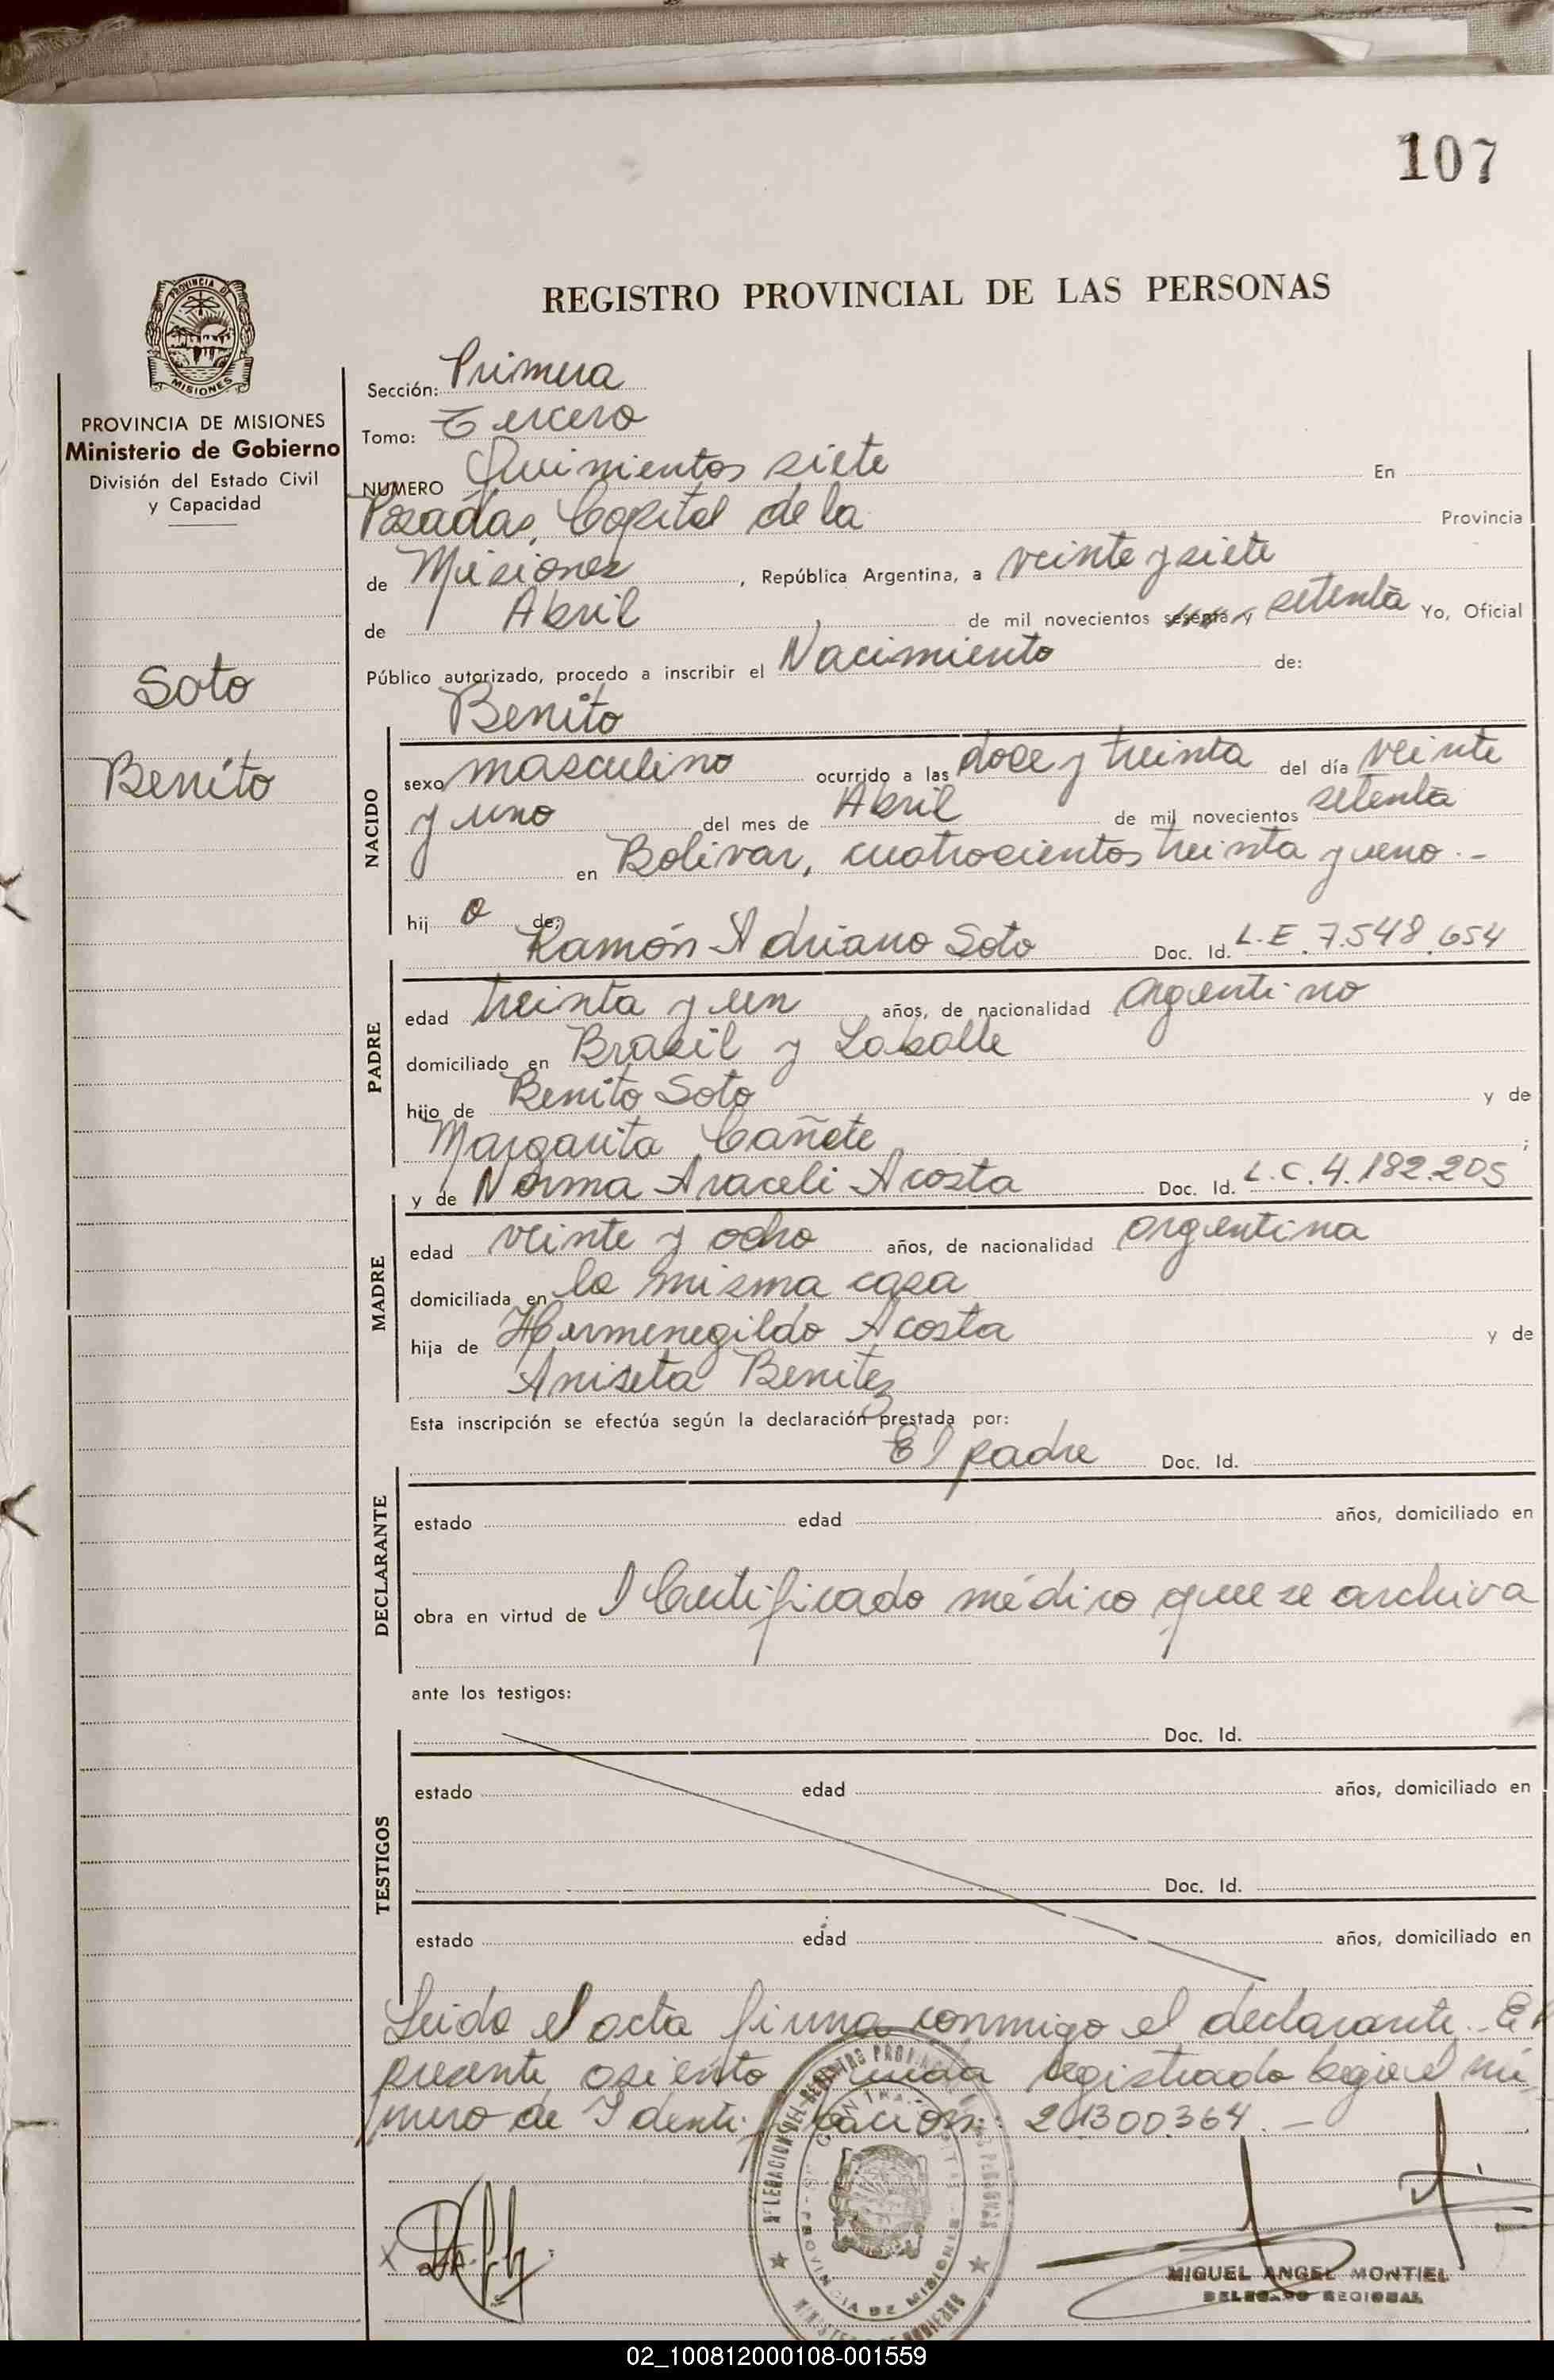 107
REGISTRO PROVINCIAL DE LAS PERSONAS
PROVINCIA DE MISIONES
Ministerio de Gobierno
División del Estado Civil
y Capacidad
Soto
Benito
Sección: Primera
Tomo: Tercero
NUMERO Quinientos siete En
Posadas, Capital de la Provincia
de Misiones, República Argentina, a veinte y siete
de Abril, de mil novecientos sesenta y setenta Yo, Oficial
Público autorizado, procedo a inscribir el Nacimiento de:
Benito
NACIDO
sexo masculino ocurrido a las doce y treinta del día veinte
y uno del mes de Abril de mil novecientos setenta
en Bolivar, cuatrocientos treinta y uno.-
hij o de:
Ramón Adriano Soto Doc. Id. L.E 7.548.654
PADRE
edad treinta y un años, de nacionalidad argentino
domiciliado en Brasil y Laballe
hijo de Benito Soto y de
Margarita Cañete;
y de Norma Araceli Acosta Doc. Id. L.C.4.182.205
MADRE
edad veinte y ocho años, de nacionalidad argentina
domiciliada en la misma casa
hija de Hermenegildo Acosta y de
Aniseta Benitez
Esta inscripción se efectúa según la declaración prestada por:
El padre Doc. Id.
DECLARANTE
estado edad años, domiciliado en
obra en virtud de l Certificado médico que se archiva
ante los testigos:
TESTIGOS
Doc. Id.
estado edad años, domiciliado en
Doc. Id.
estado edad años, domiciliado en
Leido el acta firma conmigo el declarante.- El
presente asiento queda registrado bajo el nú
mero de Identificación: 21300.364.-
MIGUEL ANGEL MONTIEL
DELEGADO REGIONAL
02_100812000108-001559